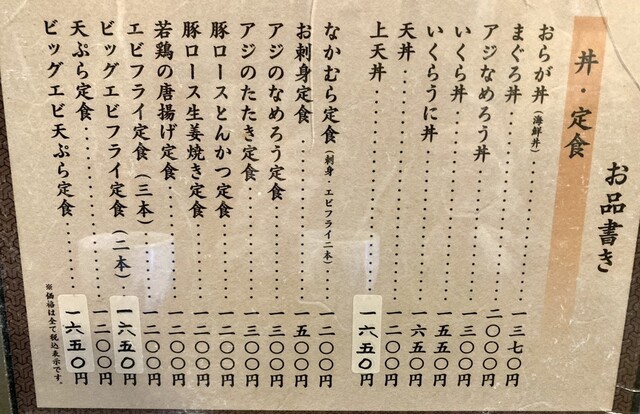 お品書き
丼・定食
おらが丼（海鮮丼）‥‥‥‥‥‥一三七〇円
まぐろ丼‥‥‥‥‥‥二〇〇〇円
アジなめろう丼‥‥‥‥‥‥一三〇〇円
いくら丼‥‥‥‥‥‥一五五〇円
いくらうに丼‥‥‥‥‥‥一六五〇円
天丼‥‥‥‥‥‥一二〇〇円
上天丼‥‥‥‥‥‥一六五〇円
なかむら定食（刺身 エビフライ二本）‥‥一二〇〇円
お刺身定食‥‥‥‥‥‥一五〇〇円
アジのなめろう定食‥‥‥‥‥‥一三〇〇円
アジのたたき定食‥‥‥‥‥‥一三〇〇円
豚ロースとんかつ定食‥‥‥‥‥‥一二〇〇円
豚ロース生姜焼き定食‥‥‥‥‥‥一二〇〇円
若鶏の唐揚げ定食‥‥‥‥‥‥一二〇〇円
エビフライ定食（三本）‥‥‥‥一二〇〇円
ビッグエビフライ定食（二本）‥‥一六五〇円
天ぷら定食‥‥‥‥‥‥一二〇〇円
ビッグエビ天ぷら定食‥‥‥‥‥‥一六五〇円
※価格は全て税込表示です。